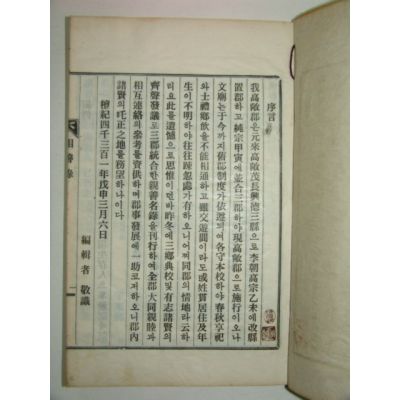 序言
我高敞郡은元來高敞茂長興德三縣으로李朝高宗乙未에改縣
置郡하고純宗甲寅에並合三郡하야現高敞郡으로施行이오나
文廟는于今까지舊郡制度가依遵되여各守本校하야春秋享祀
와士禮鄕飮을不能相通하고雖交遊間이라도或姓貫居住及年
生이不明하야往往疎忽處가有하오니어찌同郡의情地라云하
리요此를遺憾으로思惟이던나昨冬에三鄕典校및有志諸賢의
齊聲發議로三郡統合한親善名錄을刊行하여全郡大同親睦과
相互連絡의參考를資供하며郡事發展에一助코저하오니郡內
諸賢의叱正之地를務望하나이다
檀紀四千三百一年戊申三月六日
編輯者 敬識